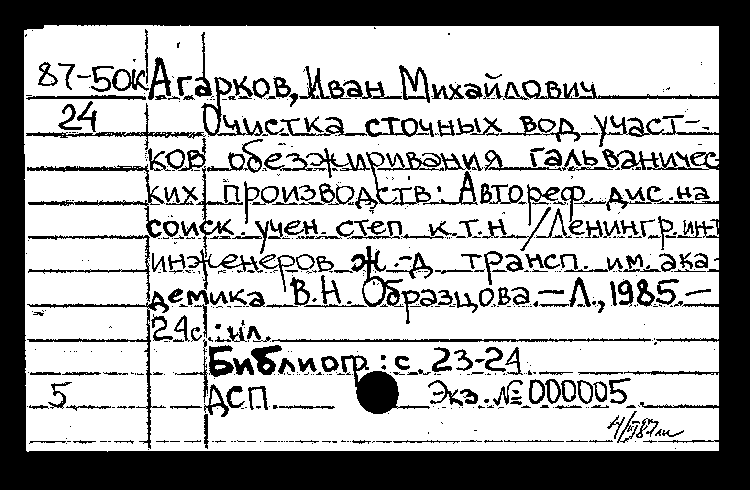 87-50к Агарков, Иван Михайлович
24 Очистка сточных вод участ-
ков обезжиривания гальваничес
ких производств: Автореф. дис. на
соиск. учен. степ. к.т.н. / Ленингр. инт
инженеров ж.-д. трансп. им. ака-
демика В.Н. Образцова. — Л., 1985. —
24с.: ил.
Библиогр.: с. 23-24
5 ДСП. Экз. № 000005.